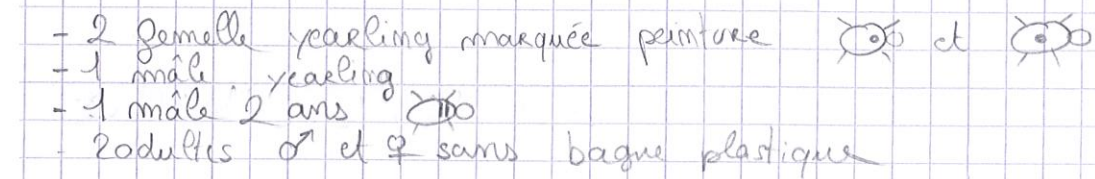 - 2 femelle yearling marquée peinture et
- 1 mâle yearling
- 1 mâle 2 ans
- 2 adultes ♂ et ♀ sans bague plastique